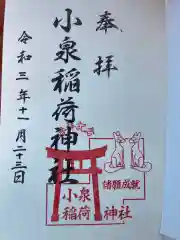 奉拝
小泉稲荷神社
令和三年十一月二十三日
諸願成就
小泉
稲荷
神社